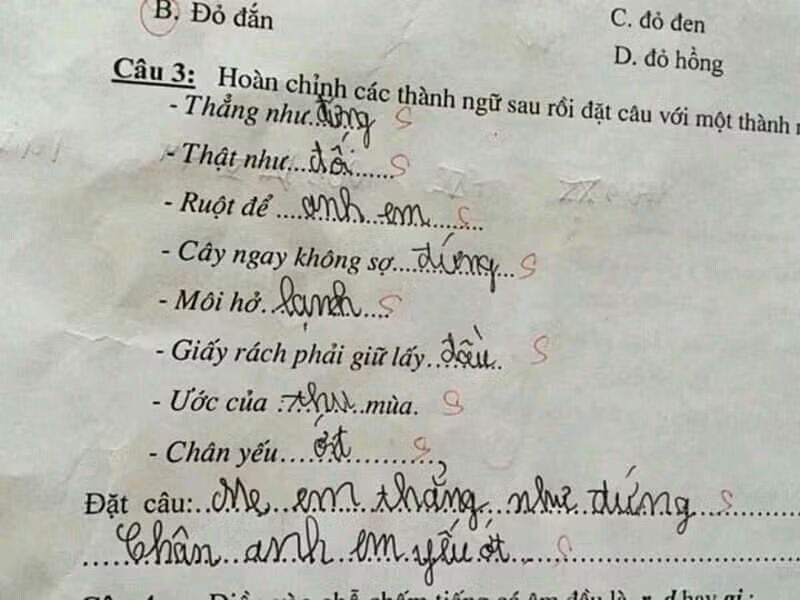 B. Đỏ đắn
C. đỏ đen
D. đỏ hồng
Câu 3: Hoàn chỉnh các thành ngữ sau rồi đặt câu với một thành
- Thẳng như..đứng S
- Thật như...đối...... S
- Ruột để ....anh em...... S
- Cây ngay không sợ....dứng... S
- Môi hở..lạnh.... S
- Giấy rách phải giữ lấy..đầu.. S
- Ước của ..thu..mùa. S
- Chân yếu....ớt........ S
Đặt câu:..Mẹ em thẳng như dứng S
Chân anh em yếu ớt S
Điền vào chỗ chấm tiếng có âm đầu là r, d hay gi :